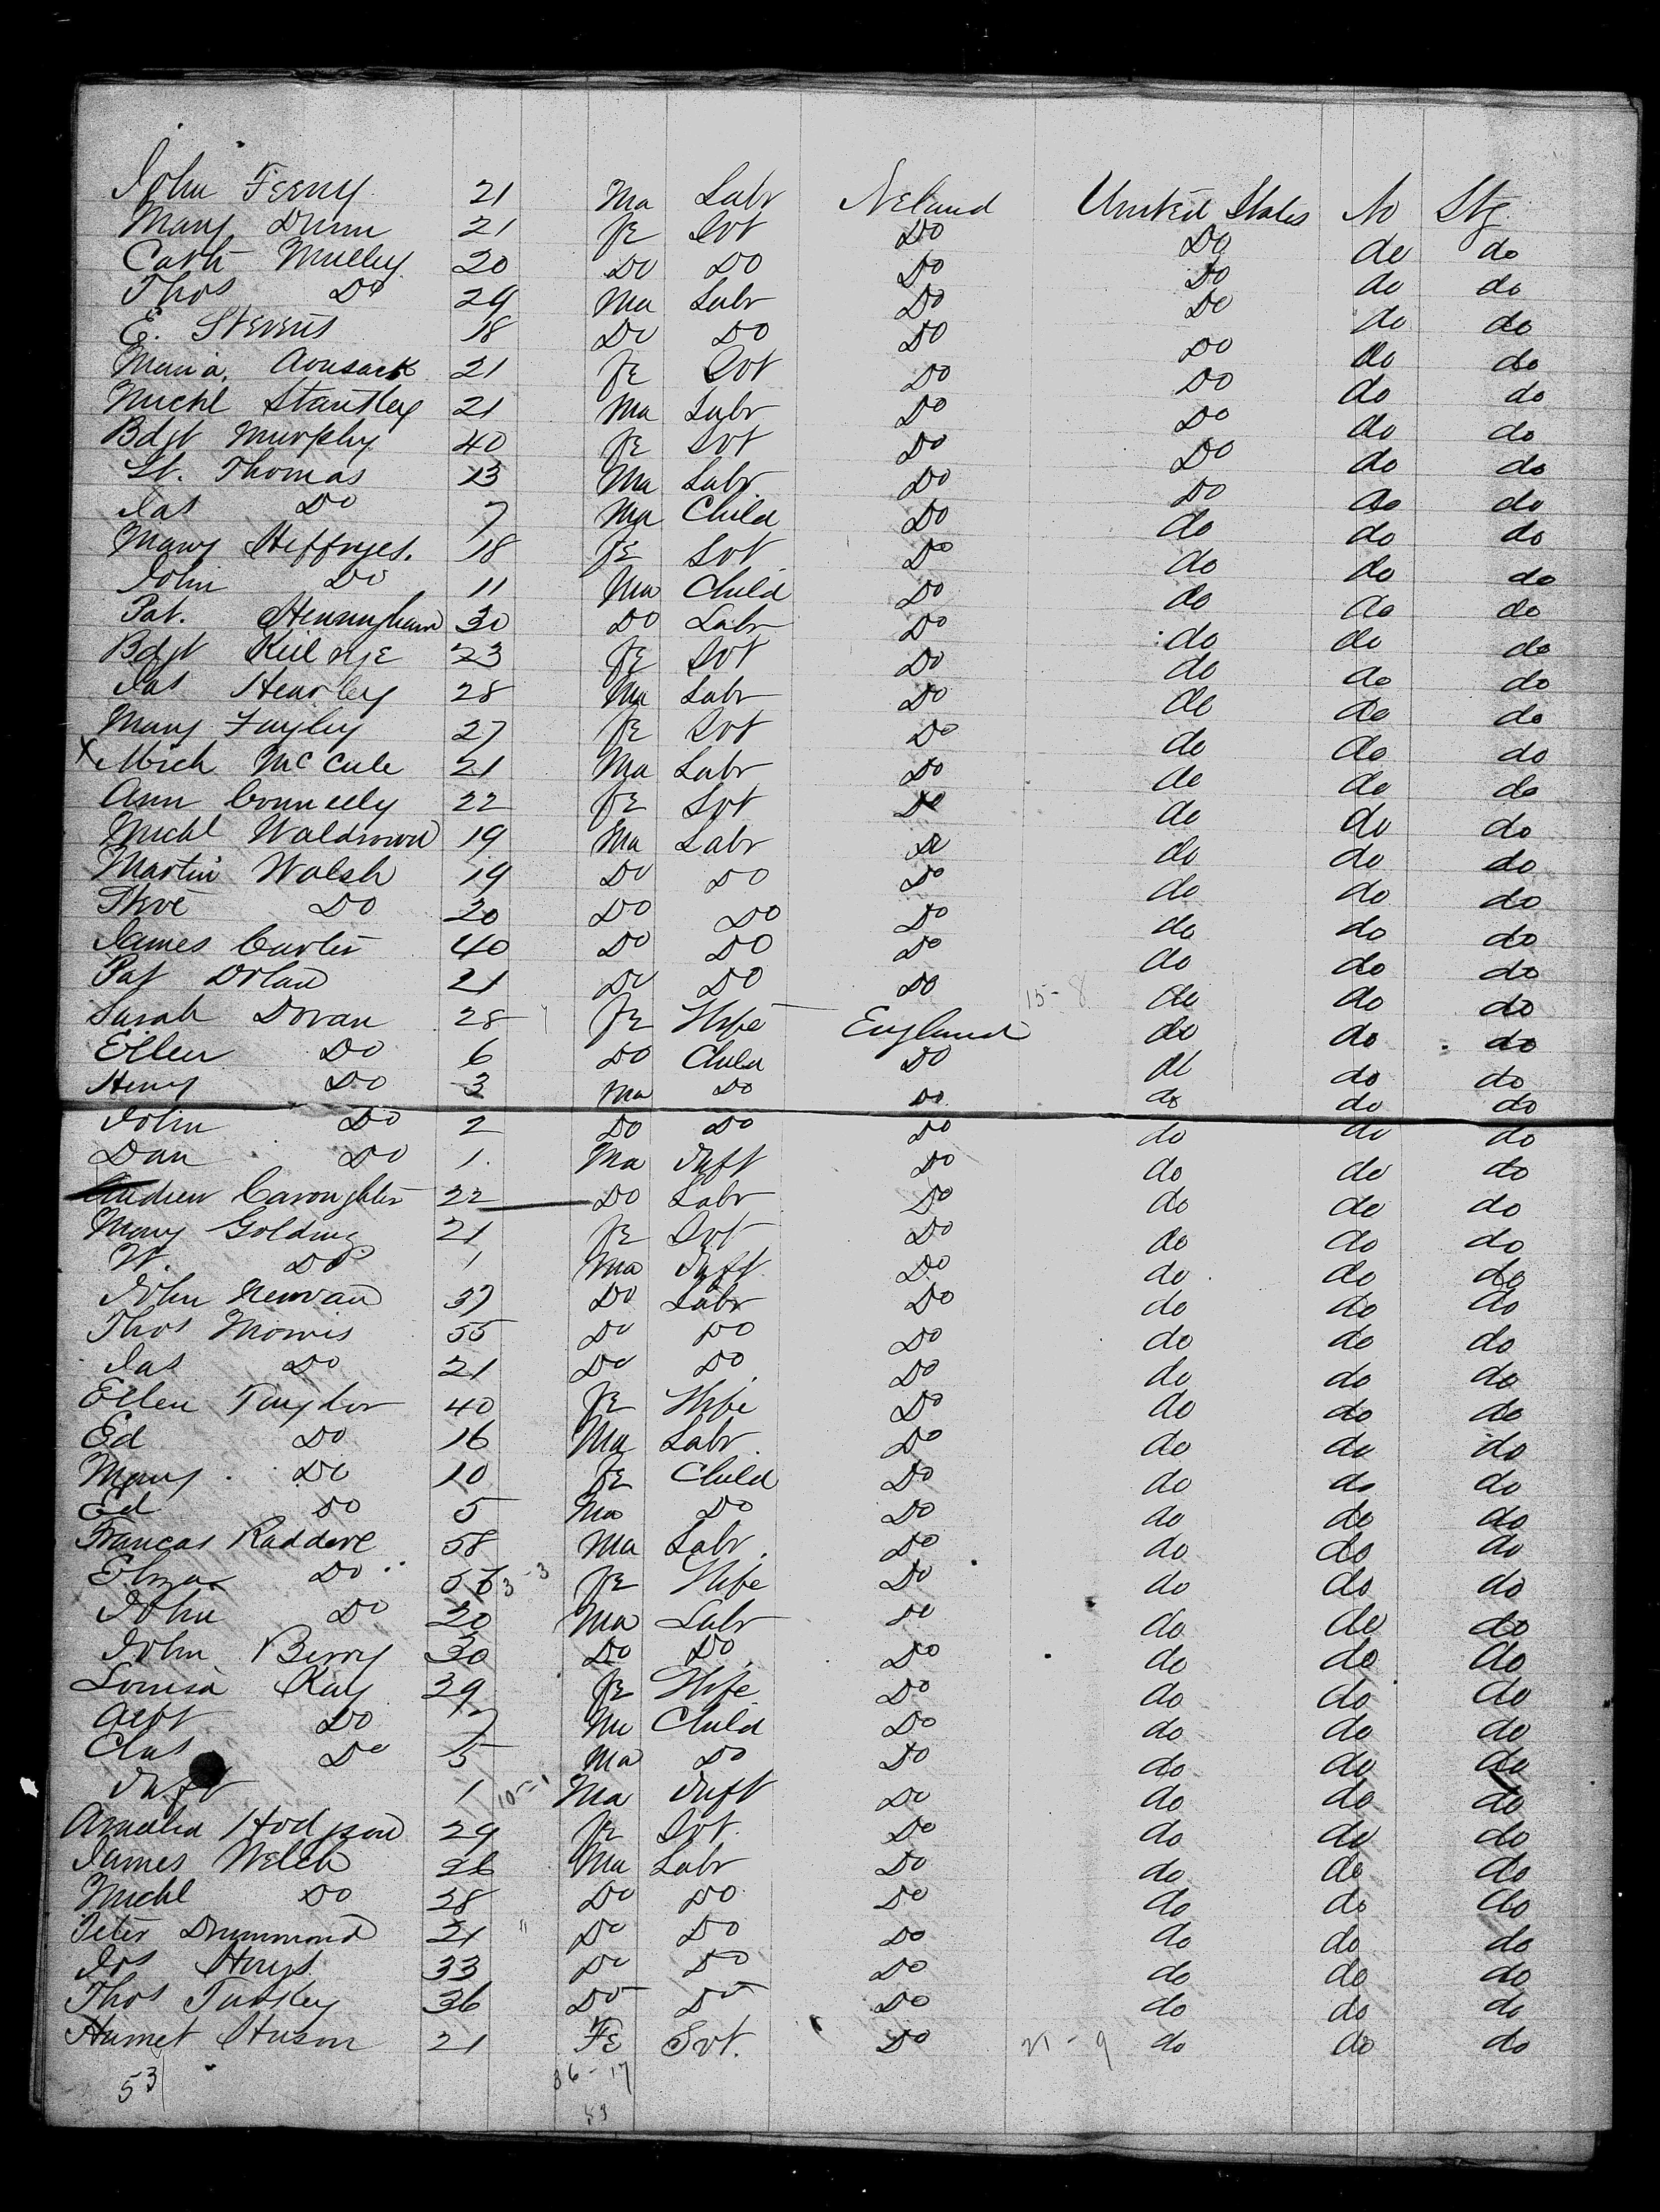 John Feeny 21 Ma Labr Ireland United States No Stg
Mary Dunn 21 Fe Svt Do Do do do
Cath Mulley 20 Do Do Do Do do do
Thos Do 29 Ma Labr Do Do do do
E. Stevens 18 Do Do Do Do do do
Maria 21 Fe Svt Do Do do do
Michl Stantley 21 Ma Labr Do Do do do
Bdgt Murphy 40 Fe Svt Do Do do do
St. Thomas 13 Ma Labr Do Do do do
Jas Do 7 Ma Child Do do do do
Mary 18 Fe Svt Do do do do
John Do 11 Ma Child Do do do do
Pat. 30 Do Labr Do do do do
Bdgt 23 Fe Svt Do do do do
Jas Hearley 28 Ma Labr Do do do do
Mary 27 Fe Svt Do do do do
x Mich McCule 21 Ma Labr Do do do do
Ann Connelly 22 Fe Svt Do do do do
Michl 19 Ma Labr Do do do do
Martin Walsh 19 Do Do Do do do do
Steve Do 20 Do Do Do do do do
James Curtis 40 Do Do Do do do do
Pat Dolan 21 Do Do Do 15-8 do do do
Sarah Doran 28 Fe Wife England do do do
Ellen Do 6 Do Child Do do do do
Henry Do 3 Ma Do Do do do do
John Do 2 Do Do Do do do do
Dan Do 1 Ma Inft Do do do do
Andrew 22 Do Labr Do do do do
Mary Golding 21 Fe Svt Do do do do
W. Do 1 Ma Inft Do do do do
John 37 Do Labr Do do do do
Thos Morris 55 Do Do Do do do do
Jas Do 21 Do Do Do do do do
Ellen Taylor 40 Fe Wife Do do do do
Ed Do 16 Ma Labr Do do do do
Mary Do 10 Fe Child Do do do do
Ed Do 5 Ma Do Do do do do
Francas 58 Ma Labr Do do do do
Eliza Do Fe Wife Do do do do
John Do 20 Ma Labr Do do do do
John Berry 30 Do Do Do do do do
Louisa Kay 29 Fe Wife Do do do do
Do 7 Ma Child Do do do do
Chas Do 5 Ma Do Do do do do
Inft 1 Ma Inft Do do do do
Amelia Hodgson 29 Fe Svt. Do do do do
James Welch 26 Ma Labr Do do do do
Michl Do 28 Do Do Do do do do
Peter Drummond 21 " Do Do Do do do do
Jos Hays 33 Do Do Do do do do
Thos 36 Do Do Do do do do
21 Fe Svt. Do 21-9 do do do
53 36-17
53